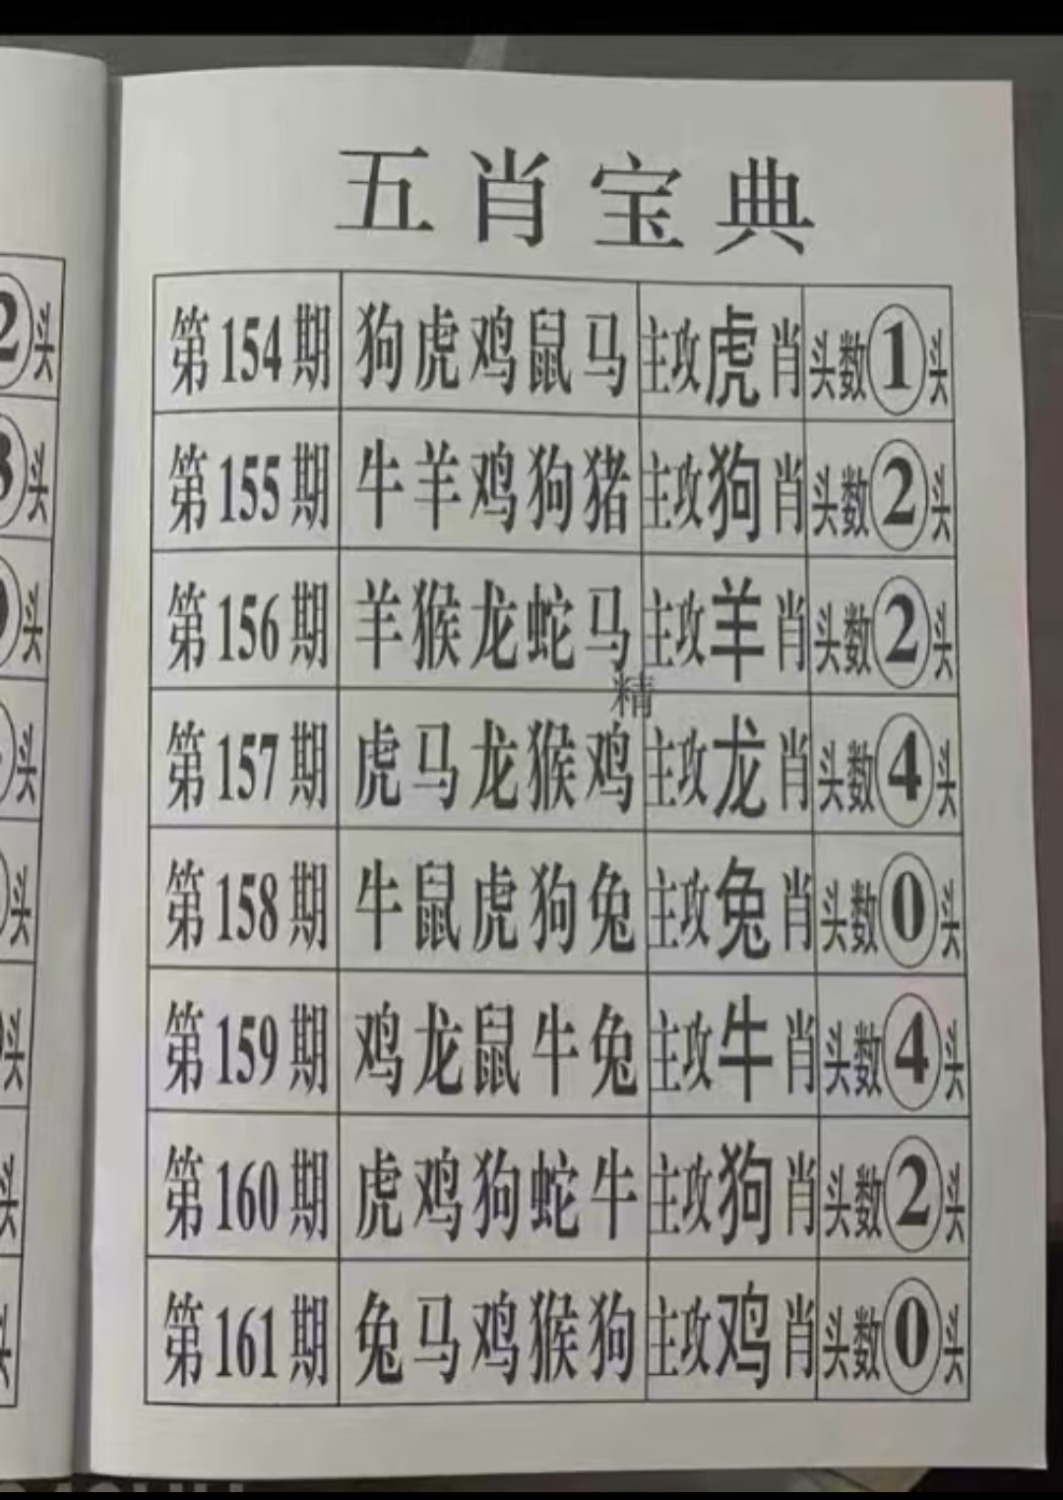 五肖宝典
第154期 狗虎鸡鼠马 主攻虎肖 头数1头
第155期 牛羊鸡狗猪 主攻狗肖 头数2头
第156期 羊猴龙蛇马 主攻羊肖 头数2头
精
第157期 虎马龙猴鸡 主攻龙肖 头数4头
第158期 牛鼠虎狗兔 主攻兔肖 头数0头
第159期 鸡龙鼠牛兔 主攻牛肖 头数4头
第160期 虎鸡狗蛇牛 主攻狗肖 头数2头
第161期 兔马鸡猴狗 主攻鸡肖 头数0头
2头
头
头
头
头
头
头
头